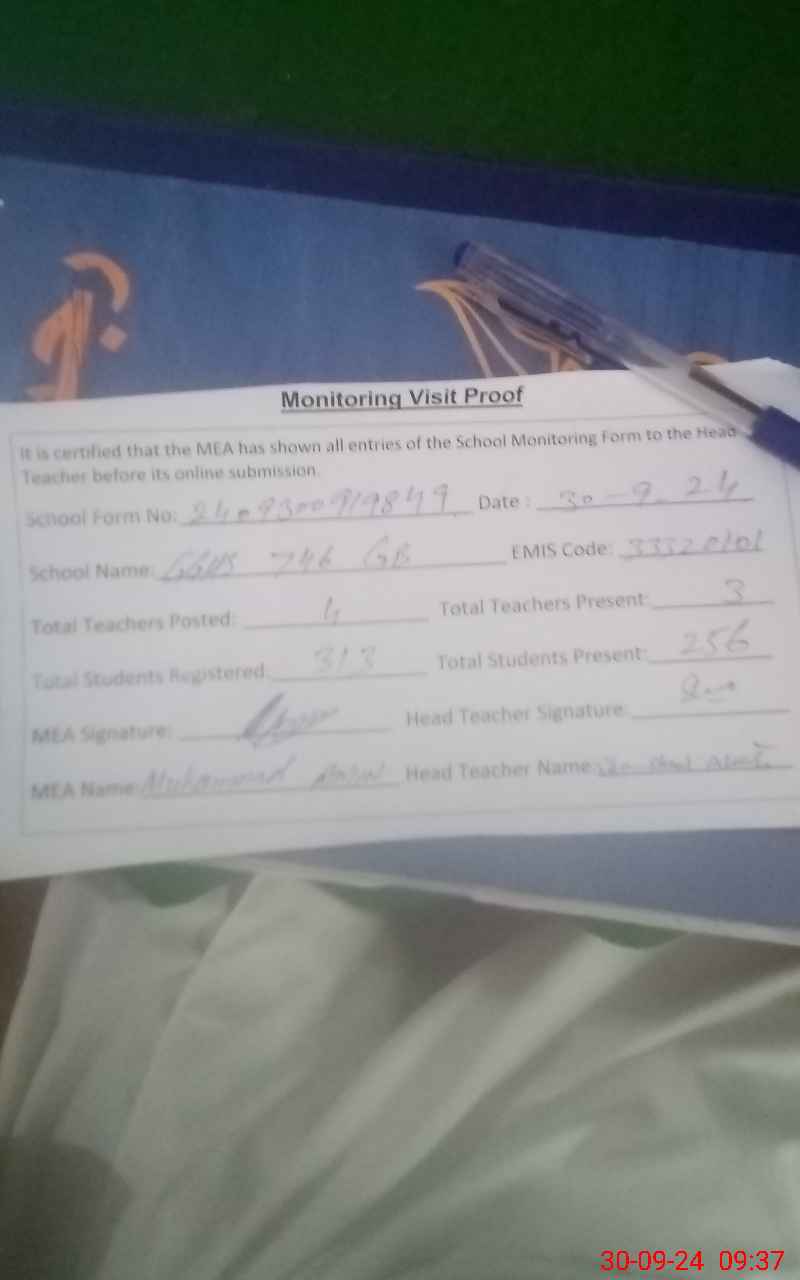 Monitoring Visit Proof
It is certified that the MEA has shown all entries of the School Monitoring Form to the Head
Teacher before its online submission.
School Form No: 2409300919849 Date : 30-9-24
School Name: 746 GB EMIS Code: 33320101
Total Teachers Posted: 4 Total Teachers Present: 3
Total Students Registered: 313 Total Students Present: 256
MEA Signature: Head Teacher Signature:
MEA Name: Muhammad Head Teacher Name:
30-09-24 09:37